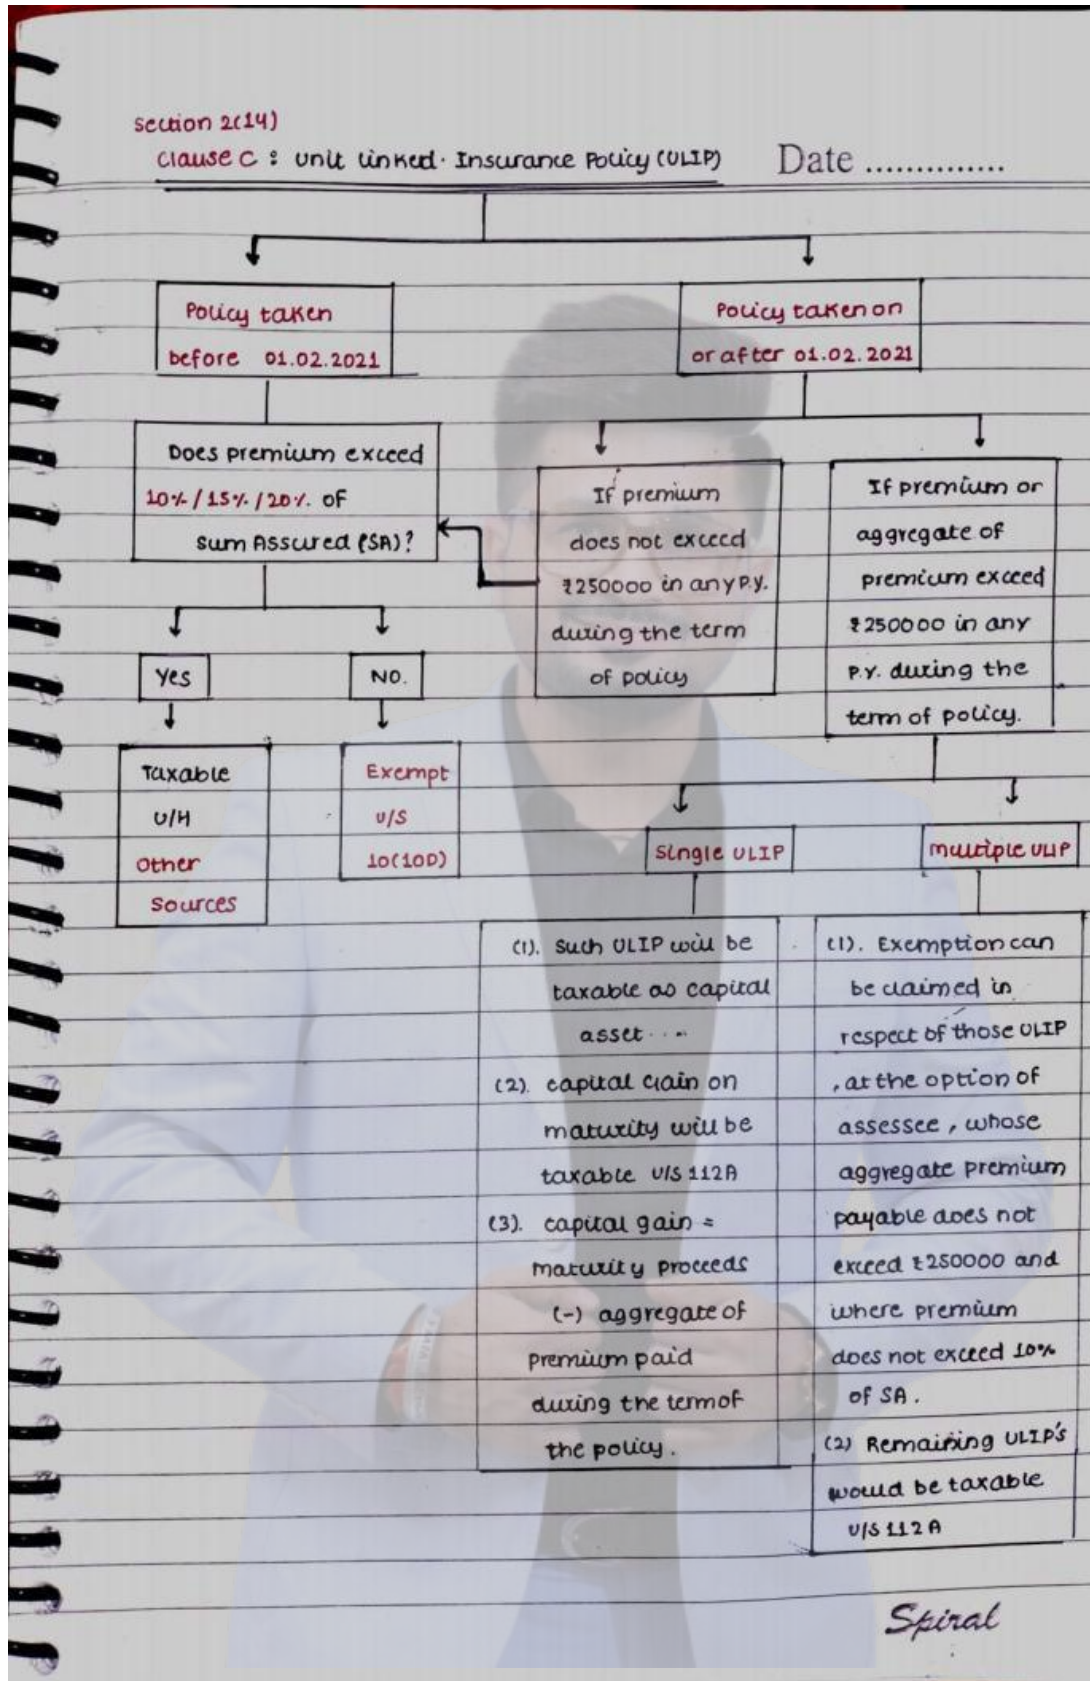 Section 2(14)
Clause C : Unit Linked. Insurance Policy (ULIP)
Date ..............
Policy taken
before 01.02.2021
Policy taken on
or after 01.02.2021
Does premium exceed
10% / 15% / 20% of
Sum Assured (SA)?
If premium
does not exceed
₹250000 in any P.Y.
during the term
of policy
If premium or
aggregate of
premium exceed
₹250000 in any
P.Y. during the
term of policy.
Yes
NO.
Taxable
U/H
Other
Sources
Exempt
U/S
10(10D)
Single ULIP
multiple ULIP
(1). Such ULIP will be
taxable as capital
asset ....
(2). capital Gain on
maturity will be
taxable U/S 112A
(3). capital gain =
maturity proceeds
(-) aggregate of
premium paid
during the term of
the policy.
(1). Exemption can
be claimed in
respect of those ULIP
, at the option of
assessee , whose
aggregate premium
payable does not
exceed ₹250000 and
where premium
does not exceed 10%
of SA.
(2) Remaining ULIP's
would be taxable
U/S 112A
Spiral